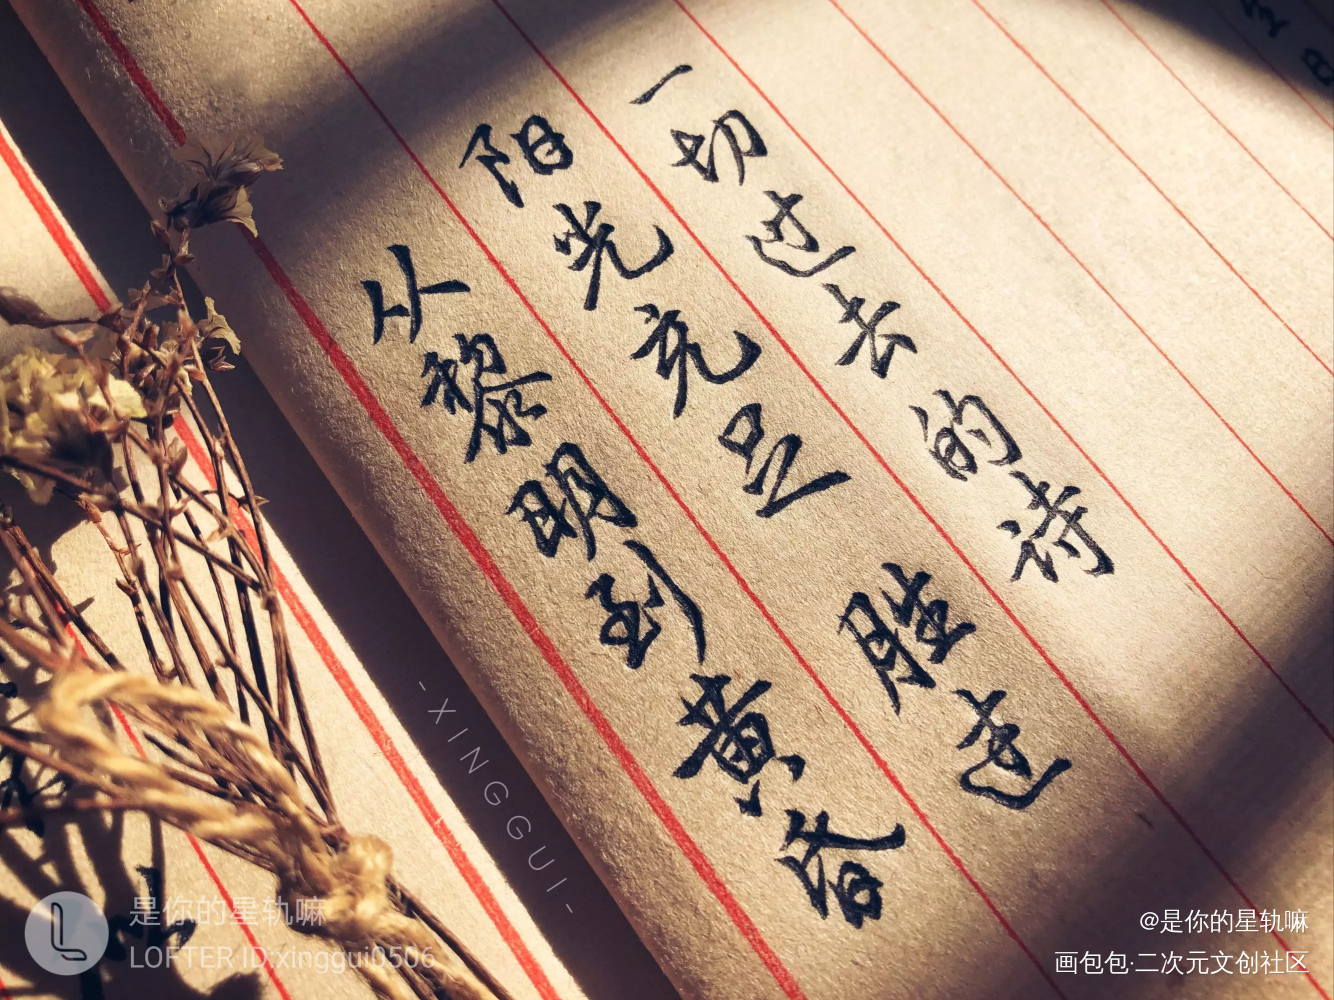 从黎明到黄昏
阳光充足
胜过
一切过去的诗
-XINGGUI-
是你的星轨嘛
LOFTER ID:xinggui0506
@是你的星轨嘛
画包包·二次元文创社区